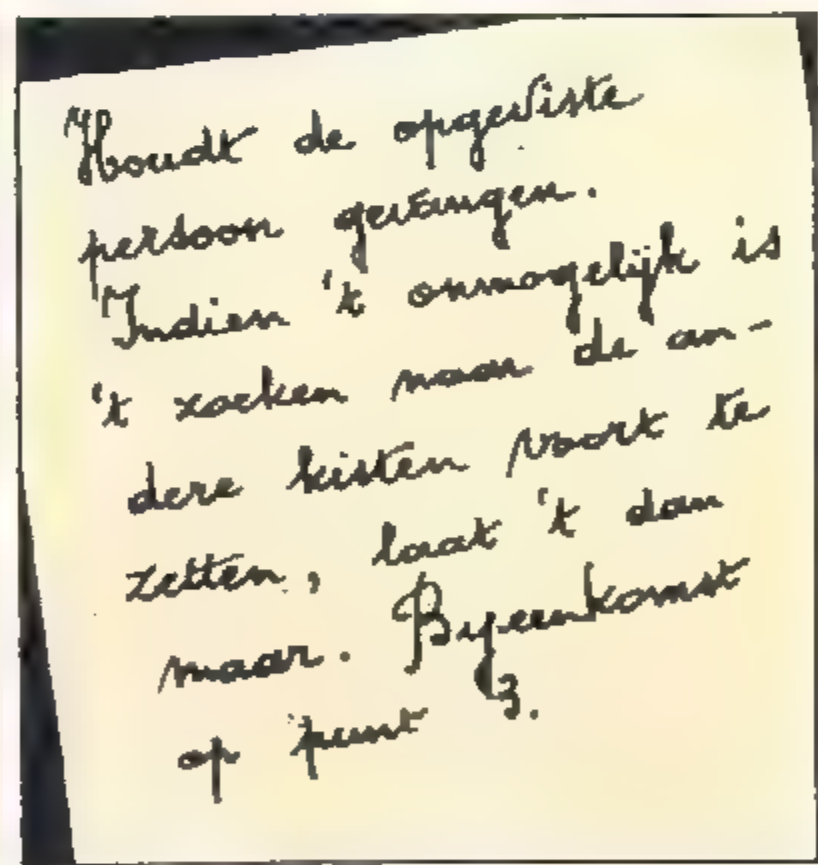 Houdt de opgeviste
persoon gevangen.
Indien 't onmogelijk is
't zoeken naar de an-
dere kisten voort te
zetten, laat 't dan
maar. Byeenkomst
op punt 3.